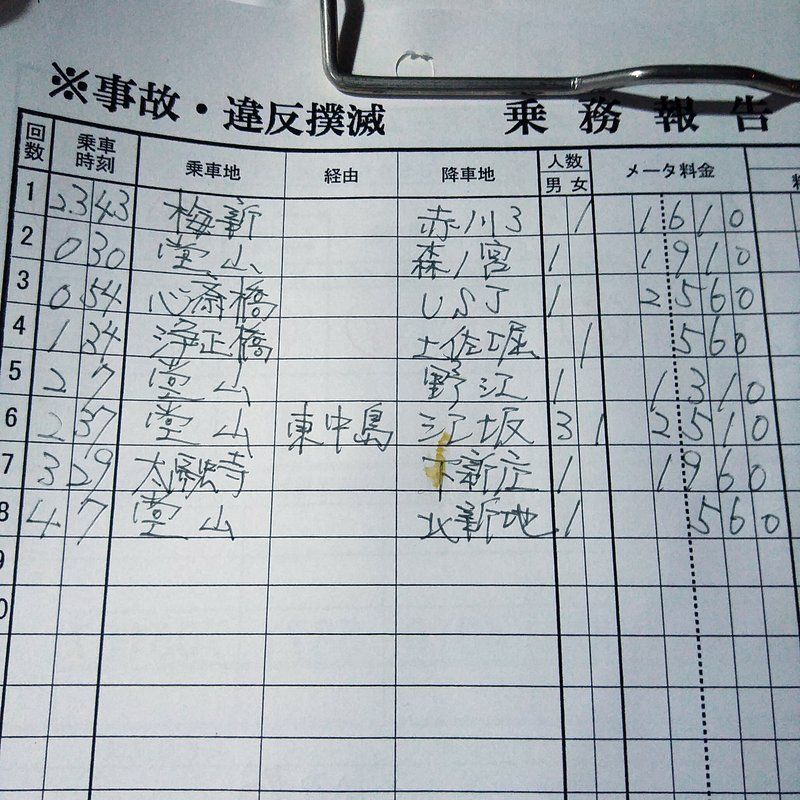 ※事故・違反撲滅 乗務報告
回数 乗車時刻 乗車地 経由 降車地 人数 男 女 メータ料金 料
1 23 43 梅新 赤川3 1 1610
2 0 30 堂山 森ノ宮 1 1910
3 0 54 心斎橋 USJ 1 2560
4 1 24 浄正橋 土佐堀 1 560
5 2 7 堂山 野江 1 1310
6 2 37 堂山 東中島 江坂 3 1 2510
7 3 29 太融寺 下新庄 1 1960
8 4 7 堂山 北新地 1 560
9
0